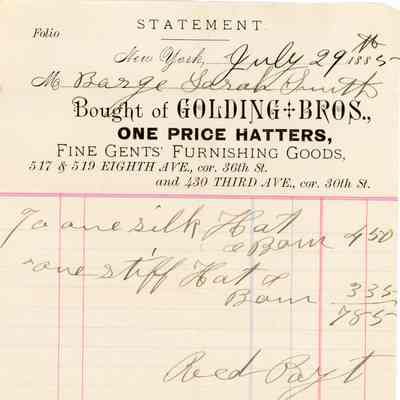 STATEMENT
Folio
New York, July 29th 1885
M Barge Sarah Smith
Bought of GOLDING & BROS.,
ONE PRICE HATTERS,
FINE GENTS' FURNISHING GOODS,
517 & 519 EIGHTH AVE., cor. 36th St.
and 430 THIRD AVE., cor. 30th St.
To one silk Hat
& Bam 4 50
" one stiff Hat &
Bam 3 35
7 85
Recd Payt